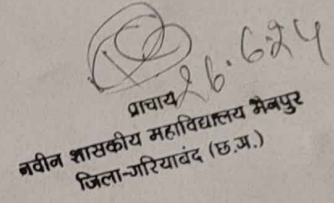 26.6.24
प्राचार्य
नवीन शासकीय महाविद्यालय मैनपुर
जिला-गरियाबंद (छ.ग.)